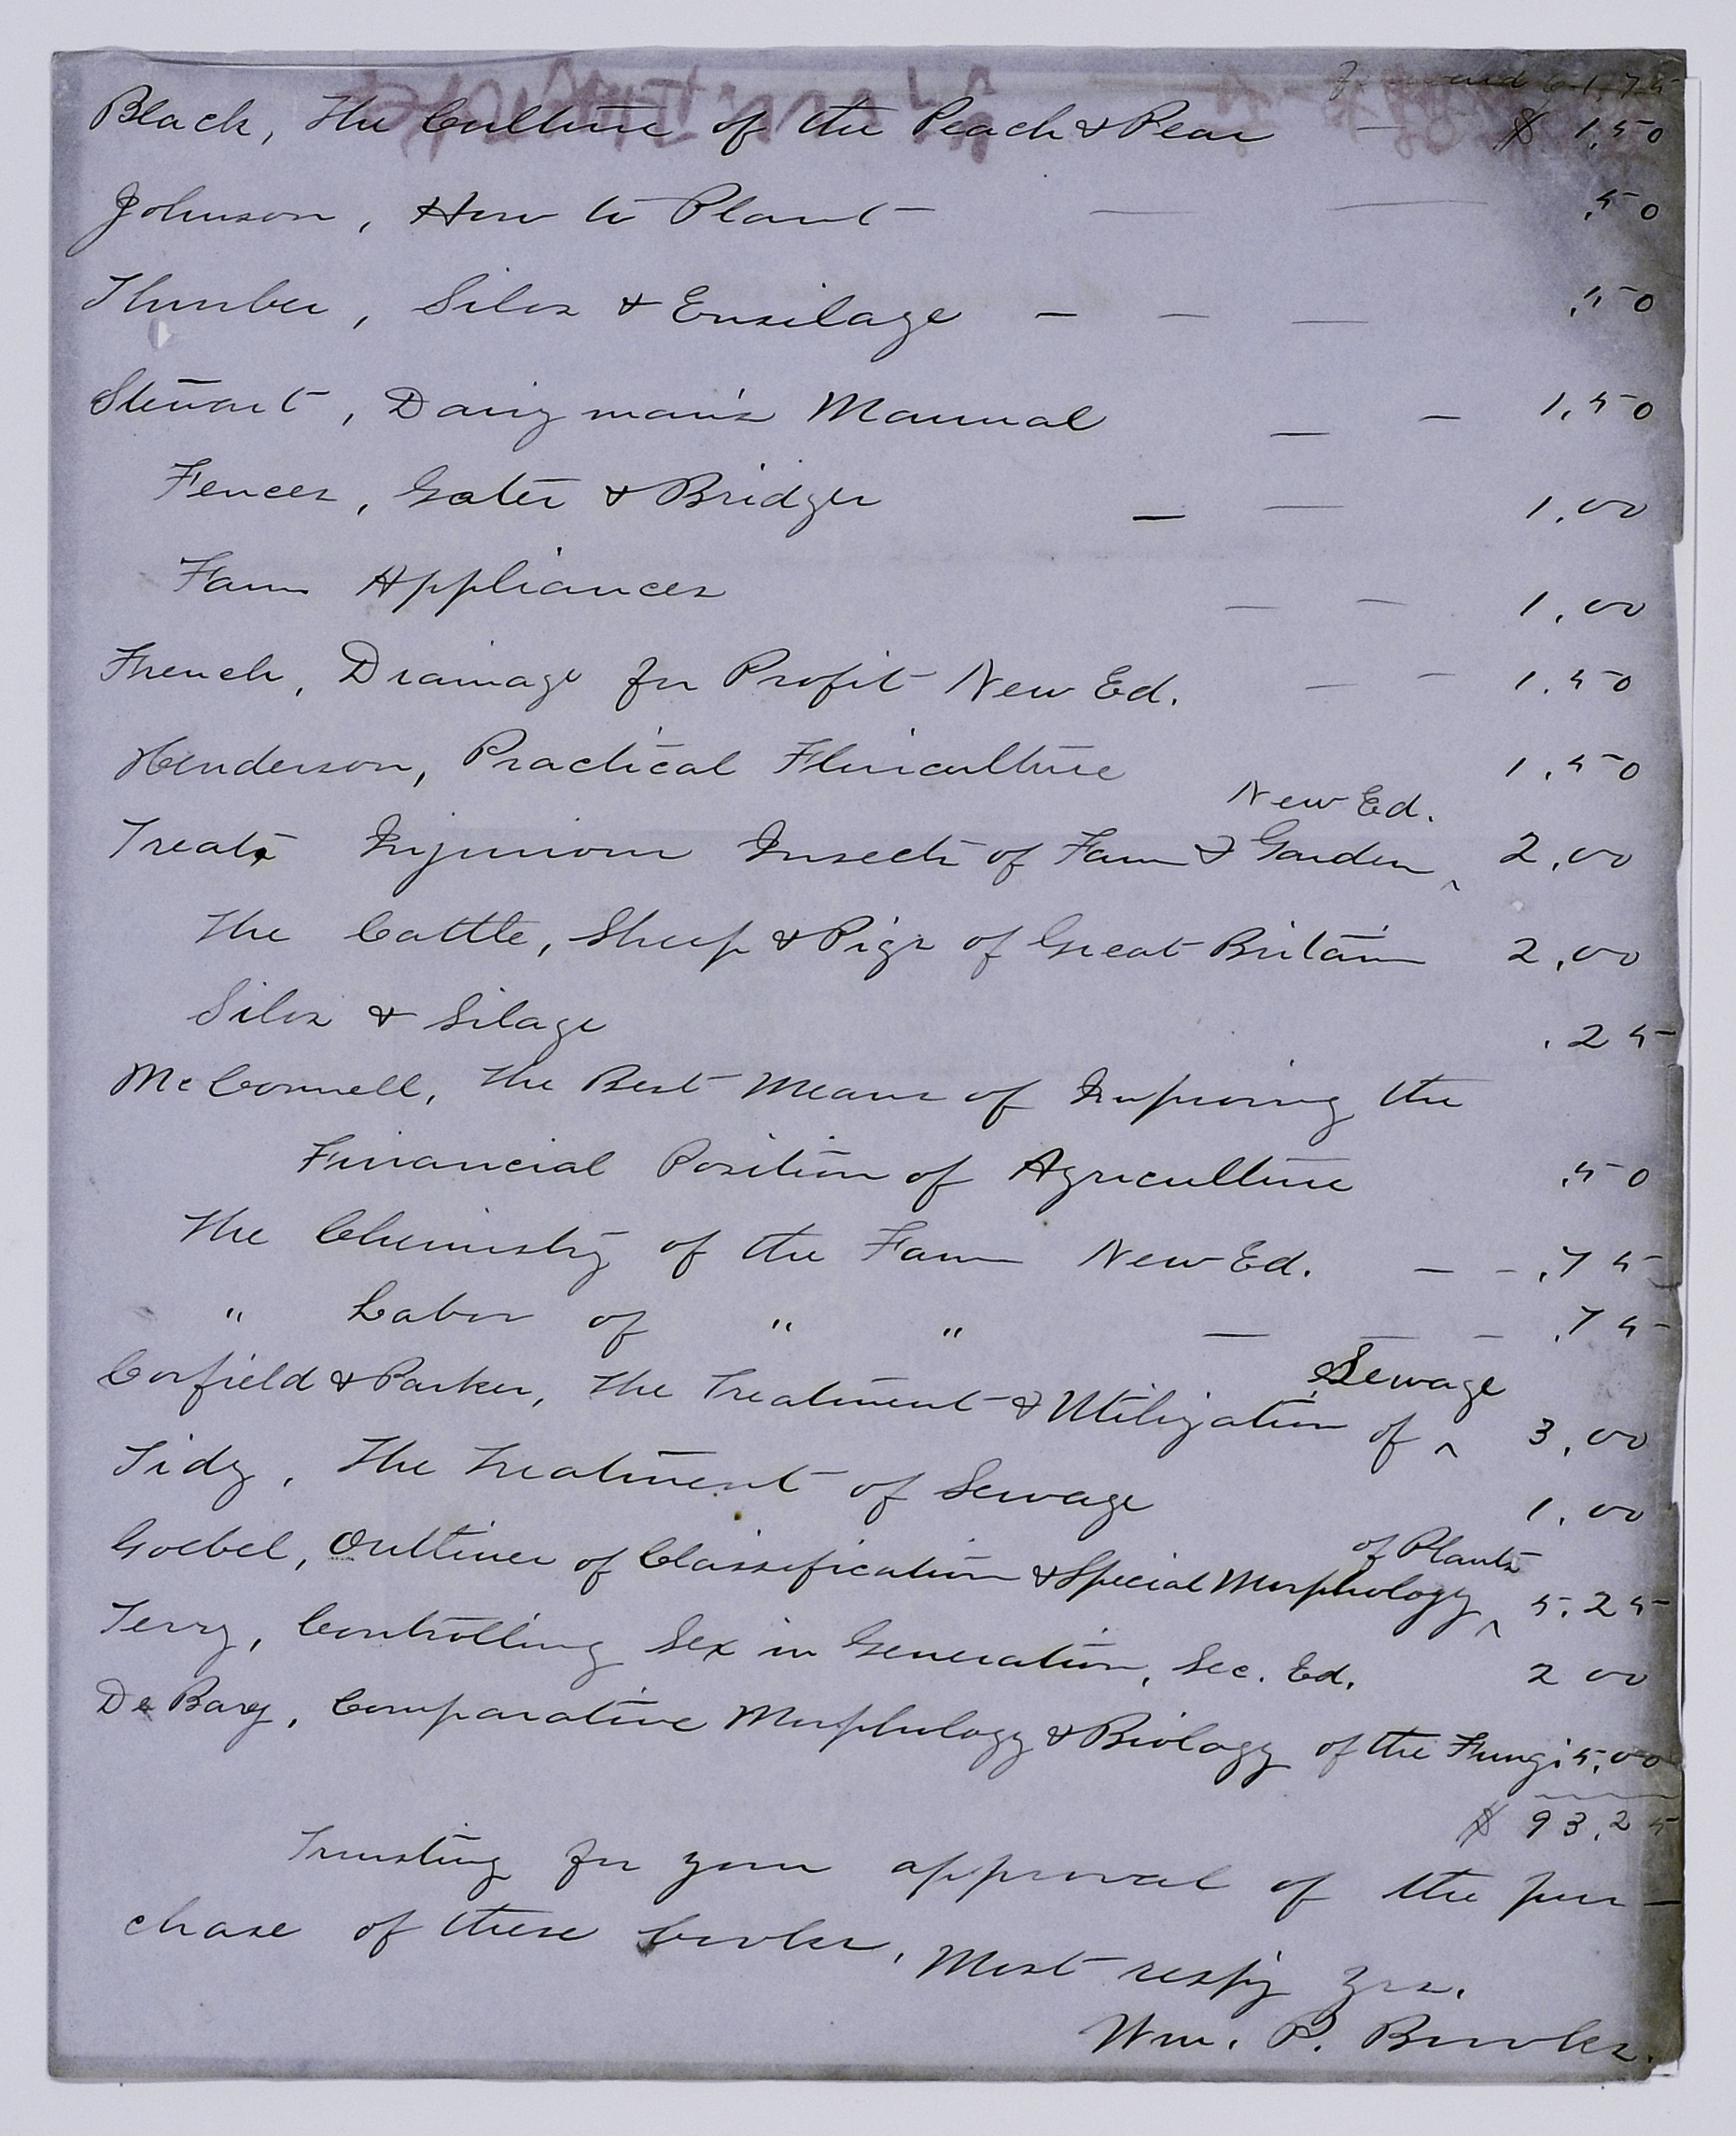 Forward 61.75
Black, The Culture of the Peach & Pear — $ 1.50
Johnson, How to Plant — — .50
Thurber, Silos & Ensilage — — — .50
Stewart, Dairyman's Manual — — 1.50
Fences, Gates & Bridges — — 1.00
Farm Appliances — — 1.00
French, Drainage for Profit New Ed. — — 1.50
Henderson, Practical Floriculture 1.50
New Ed.
Treat, Injurious Insects of Farm & Garden ^ 2.00
The Cattle, Sheep & Pigs of Great Britain 2.00
Silos & Silage .25
McConnell, The Best Means of Improving the
Financial Position of Agriculture .50
The Chemistry of the Farm New Ed. — — .75
" Labor of " " — — — .75
Sewage
Corfield & Parker, The Treatment & Utilization of ^ 3.00
Tidy, The Treatment of Sewage 1.00
of Plants
Goebel, Outlines of Classification & Special Morphology ^ 5.25
Terry, Controlling Sex in Generation, Sec. Ed. 2 00
De Bary, Comparative Morphology & Biology of the Fungi 5.00
$ 93.25
Trusting for your approval of the pur-
chase of these books,
Most respy yrs.
Wm. P. Brooks.